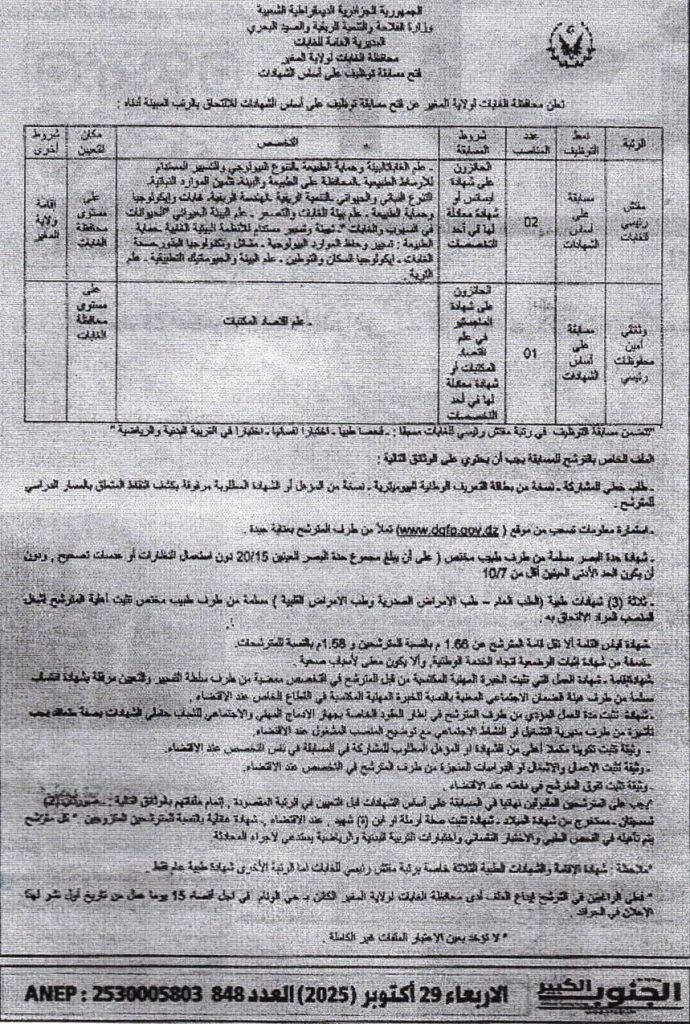 الجمهورية الجزائرية الديمقراطية الشعبية
وزارة الفلاحة والتنمية الريفية والصيد البحري
المديرية العامة للغابات
محافظة الغابات لولاية المغير
فتح مسابقة توظيف على أساس الشهادات
تعلن محافظة الغابات لولاية المغير عن فتح مسابقة توظيف على أساس الشهادات للالتحاق بالرتب المبينة أدناه :
الرتبة
نمط التوظيف
عدد المناصب
شروط المسابقة
التخصص
مكان التعيين
شروط أخرى
مفتش رئيسي للغابات
مسابقة على أساس الشهادات
02
الحائزون على شهادة ليسانس أو شهادة معادلة لها في أحد التخصصات
ـ علم الغابات البيئة وحماية الطبيعة ـ التنوع البيولوجي والتسيير المستدام
للأوساط الطبيعية ـ المحافظة على الطبيعة والبيئة ـ تثمين الموارد النباتية ـ
التنوع النباتي والحيواني ـ التنمية الريفية ـ الهندسة الريفية ـ غابات وإيكولوجيا
وحماية الطبيعة ـ علم بيئة الغابات والتصحر ـ علم البيئة الحيواني "الحيوانات
في السهوب والغابات" ـ تهيئة وتسيير مستدام للأنظمة البيئية الغابية ـ حماية
الطبيعة : تسيير وحفظ الموارد البيولوجية ـ مشاتل وتكنولوجيا البذور ـ صحة
الغابات ـ ايكولوجيا السكان والتوطين ـ علم البيئة والجيوماتيك التطبيقية ـ علم
التربة .
على مستوى محافظة الغابات
إقامة ولاية المغير
وثائقي أمين محفوظات رئيسي
مسابقة على أساس الشهادات
01
الحائزون على شهادة الماجستير في علم اقتصاد المكتبات أو شهادة معادلة لها في أحد التخصصات
ـ علم اقتصاد المكتبات
على مستوى محافظة الغابات
"تتضمن مسابقة التوظيف في رتبة مفتش رئيسي للغابات مسبقا : ـ فحصا طبيا ـ اختبارا نفسانيا ـ اختبارا في التربية البدنية والرياضية "
الملف الخاص بالترشح للمسابقة يجب أن يحتوي على الوثائق التالية :
ـ طلب خطي للمشاركة ـ نسخة من بطاقة التعريف الوطنية البيومترية ـ نسخة من المؤهل أو الشهادة المطلوبة مرفوقة بكشف النقاط المتعلق بالمسار الدراسي
للمترشح .
ـ استمارة معلومات تسحب من موقع ( www.dgfp.gov.dz) تملأ من طرف المترشح بعناية جيدة .
ـ شهادة حدة البصر مسلمة من طرف طبيب مختص ( على أن يبلغ مجموع حدة البصر العينين 20/15 دون استعمال النظارات أو عدسات تصحيح , ودون
أن يكون الحد الأدنى العينين أقل من 10/7
ـ ثلاثة (3) شهادات طبية (الطب العام – طب الامراض الصدرية وطب الامراض القلبية ) مسلمة من طرف طبيب مختص تثبت أهلية المترشح لشغل
المنصب المراد الالتحاق به .
ـ شهادة قياس القامة ألا تقل قامة المترشح عن 1.66 م بالنسبة للمترشحين و 1.58م بالنسبة للمترشحات.
ـ نسخة من شهادة إثبات الوضعية تجاه الخدمة الوطنية, وألا يكون معفى لأسباب صحية .
شهادة إقامة ـ شهادة العمل التي تثبت الخبرة المهنية المكتسبة من قبل المترشح في التخصص ممضية من طرف سلطة التسيير والتعيين مرفقة بشهادة انتساب
مسلمة من طرف هيئة الضمان الاجتماعي المعنية بالنسبة للخبرة المهنية المكتسبة في القطاع الخاص عند الاقتضاء.
ـ شهادة تثبت مدة العمل المؤدي من طرف المترشح في إطار العقود الخاصة بجهاز الإدماج المهني والاجتماعي للشباب حاملي الشهادات بصفة متعاقد يجب
تأشيرة من طرف مديرية التشغيل أو النشاط الاجتماعي مع توضيح المنصب المشغول عند الاقتضاء.
ـ وثيقة تثبت تكوينا مكملا أعلى من الشهادة أو المؤهل المطلوب للمشاركة في المسابقة في نفس التخصص عند الاقتضاء.
ـ وثيقة تثبت الاعمال والاشغال أو الدراسات المنجزة من طرف المترشح في التخصص عند الاقتضاء.
وثيقة تثبت تفوق المترشح في دفعته عند الاقتضاء .
"يجب على المترشحين المقبولين نهائيا في المسابقة على أساس الشهادات قبل التعيين في الرتبة المقصودة , إتمام ملفاتهم بالوثائق التالية : ـ صورتين (2)
شمسيتان ـ مستخرج من شهادة الميلاد ـ شهادة تثبت صفة أرملة او ابن (ة) شهيد , عند الاقتضاء , شهادة عائلية بالنسبة للمترشحين المتزوجين " كل مترشح
يتم تأهيله في الفحص الطبي والاختبار النفساني واختبارات التربية البدنية والرياضية يستدعى لاجراء المحادثة.
*ملاحظة : شهادة الإقامة والشهادات الطبية الثلاثة خاصة برتبة مفتش رئيسي للغابات أما الرتبة الأخرى شهادة طبية عام فقط .
* فعلى الراغبين في الترشح إيداع الملف لدى محافظة الغابات لولاية المغير الكائن بـ حي الوئام في اجل أقصاه 15 يوما عمل من تاريخ أول نشر لهذا
الإعلان في الجرائد .
* لا تؤخذ بعين الاعتبار الملفات غير الكاملة .
الجنوب الكبير
الاربعاء 29 أكتوبر (2025) العدد 848 ANEP : 2530005803